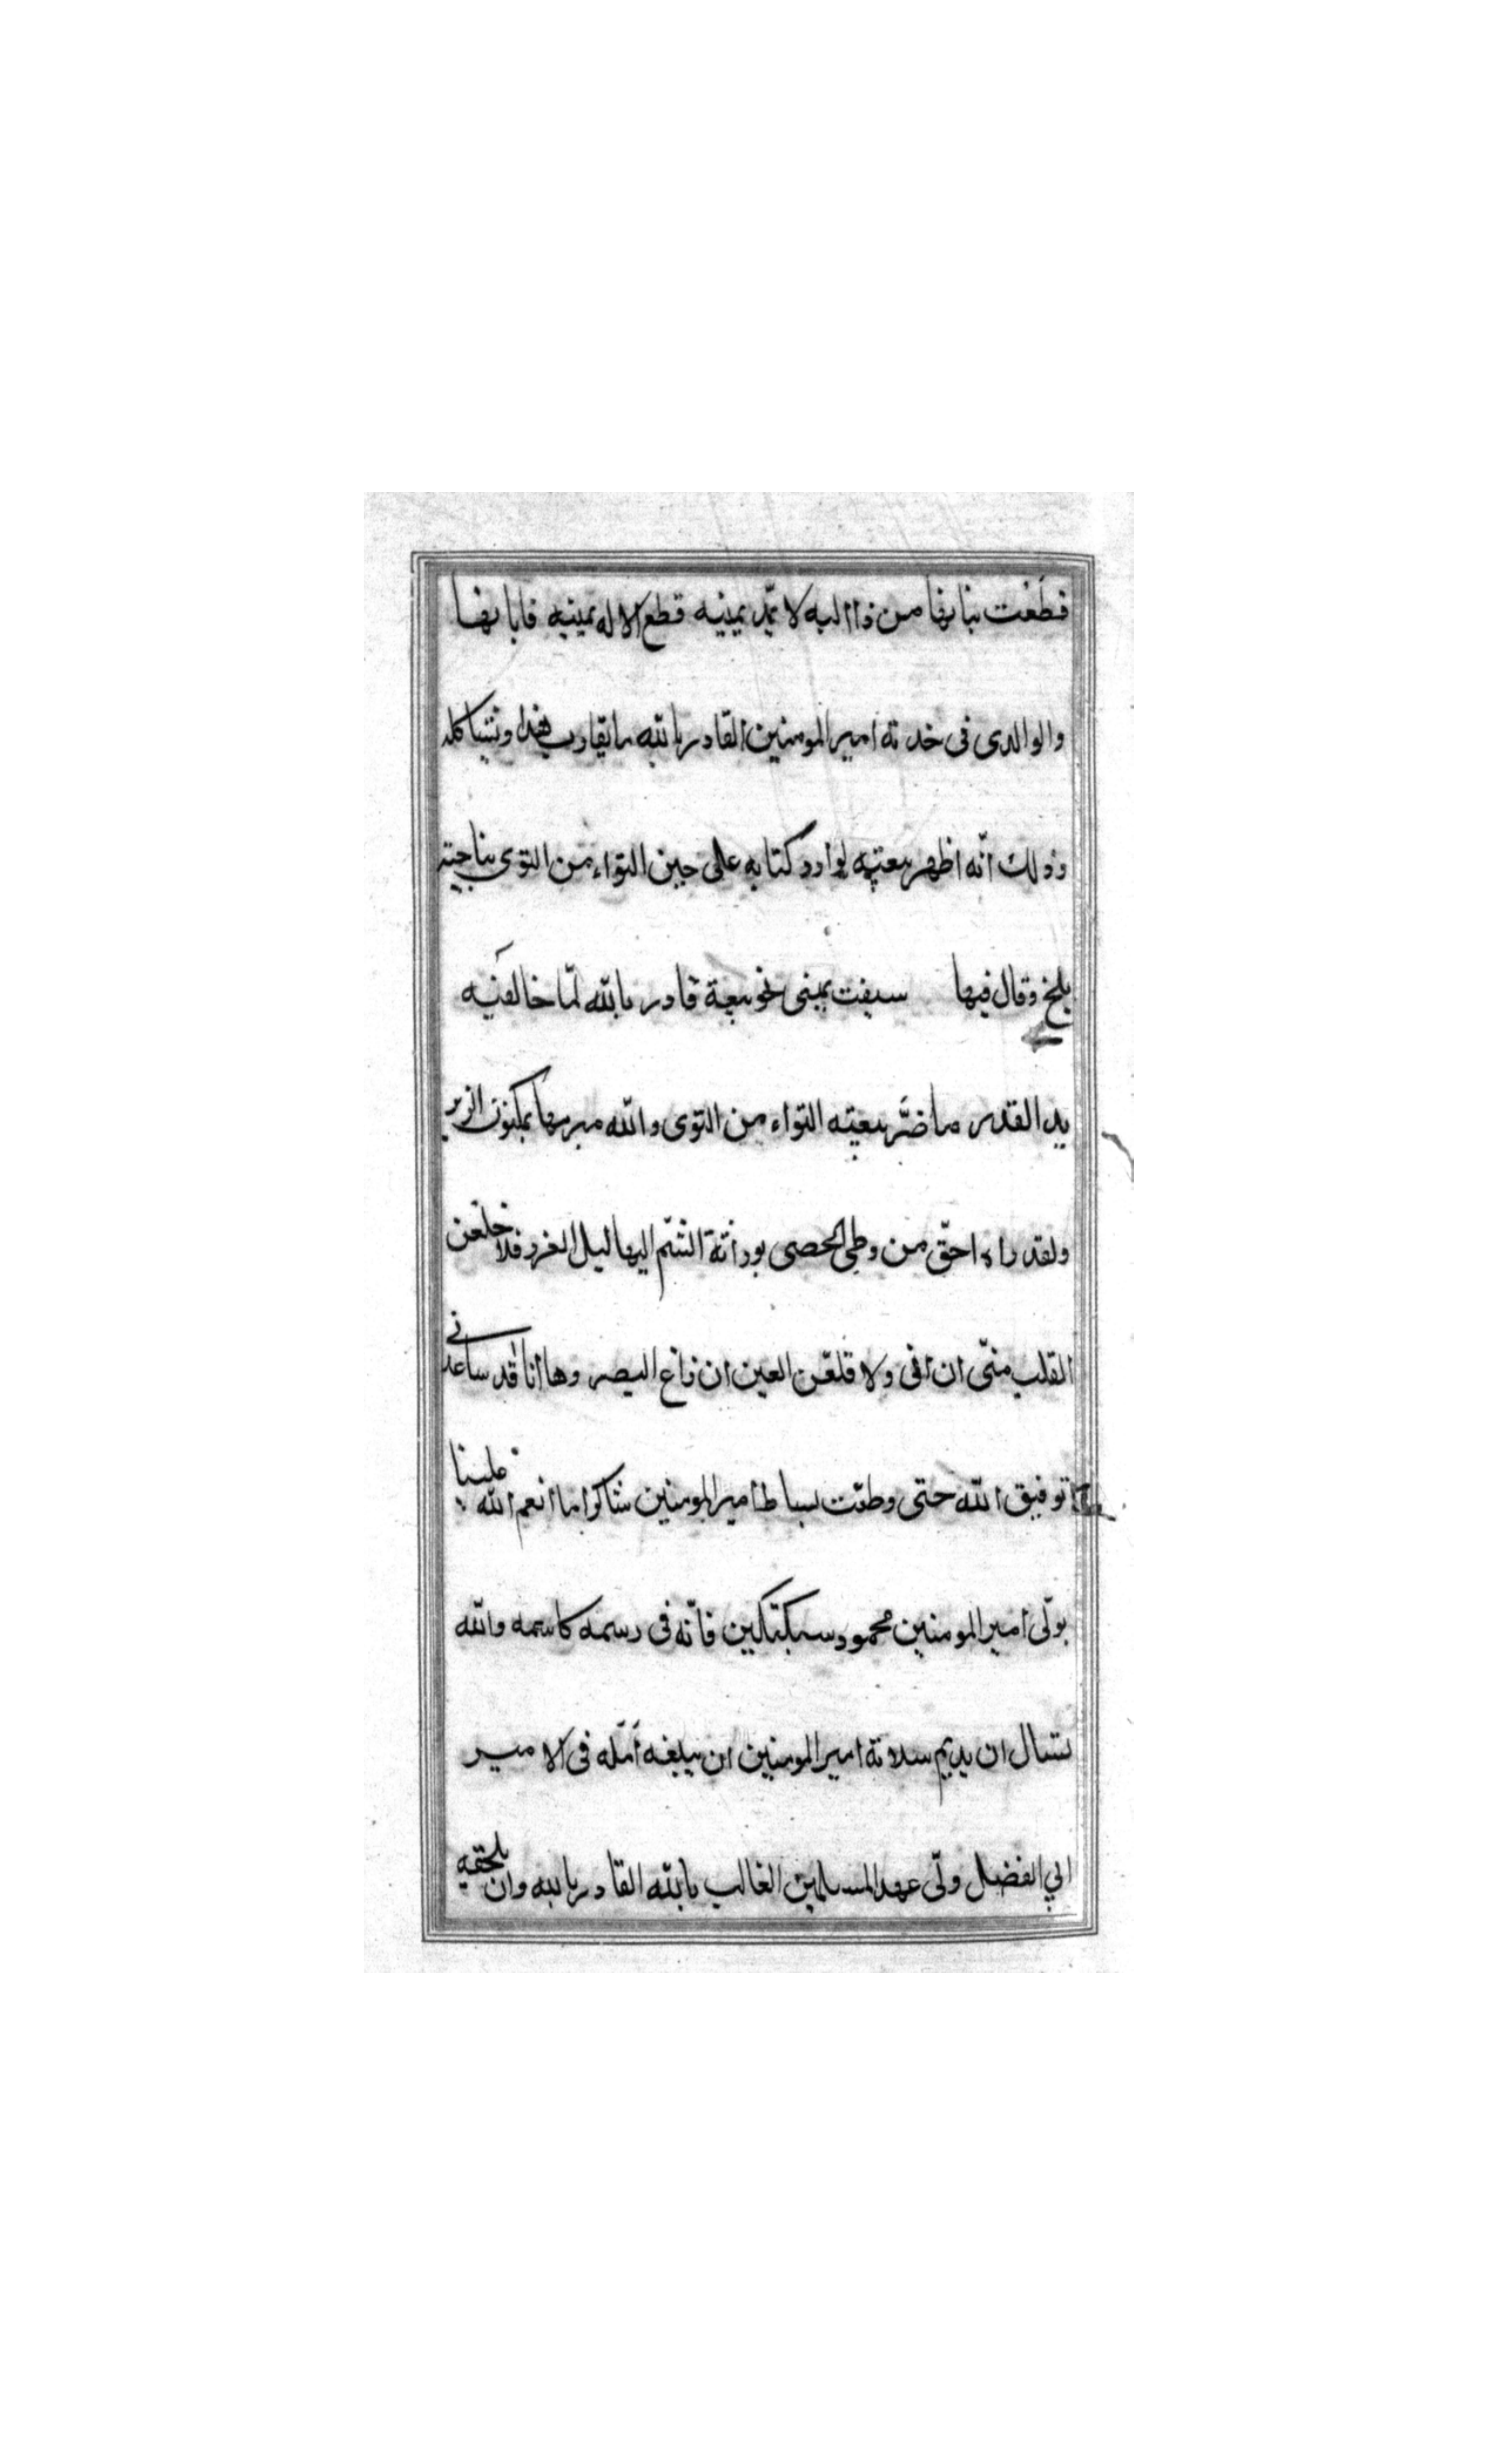 فطعت بنانها من ذا اليه لا تمد يمينه قطع الاله يمينه فابانها
والوالدى فى خدمة امير المومنين القادر بالله ما يقارب هذا ونشاكله
وذلك انه اظهر بيعته لوارد كتابه على حين التواء من التوى بناحية
بلخ وقال فيها سبقت يمينى نحو بيعة قادر بالله لما خالفنيه
يد القدر ما ضر بيعته التواء من التوى والله مبرمها بمكنون الزبر
ولقد راه احق من وطى الحصى بوراثة الشم البهاليل الغرر فلاخلعن
القلب منى ان افى ولا قلعن العين ان زاغ البصر وها انا قد ساعدنى
توفيق الله حتى وطئت بساط امير المومنين شاكرا ما انعم الله علينا
بولى امير المومنين محمود سبكتكين فانه فى رسمه كاسمه والله
نسال ان يديم سلامة امير المومنين ان يبلغه امله فى الامير
ابي الفضل ولى عهد المسلمين الغالب بالله القادر بالله وان يلحقه